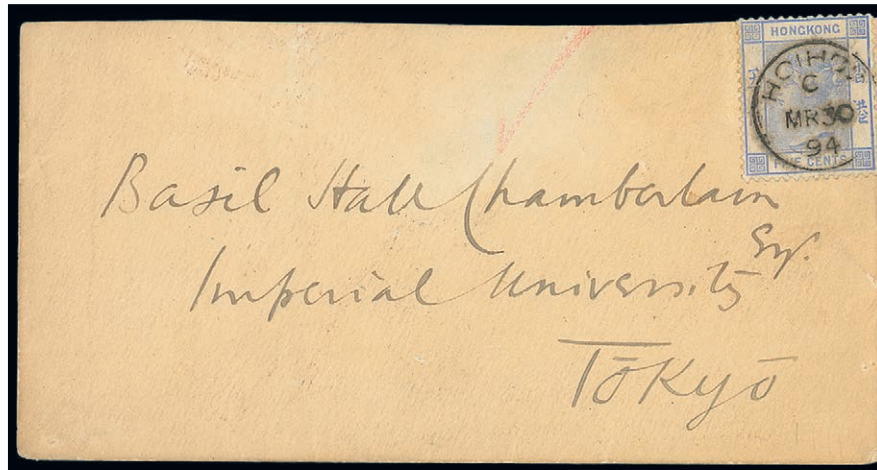 HONGKONG
HOIHOW
C
MR30
94
FIVE CENTS
Basil Hall Chamberlain
Esq.
Imperial University
Tōkyō